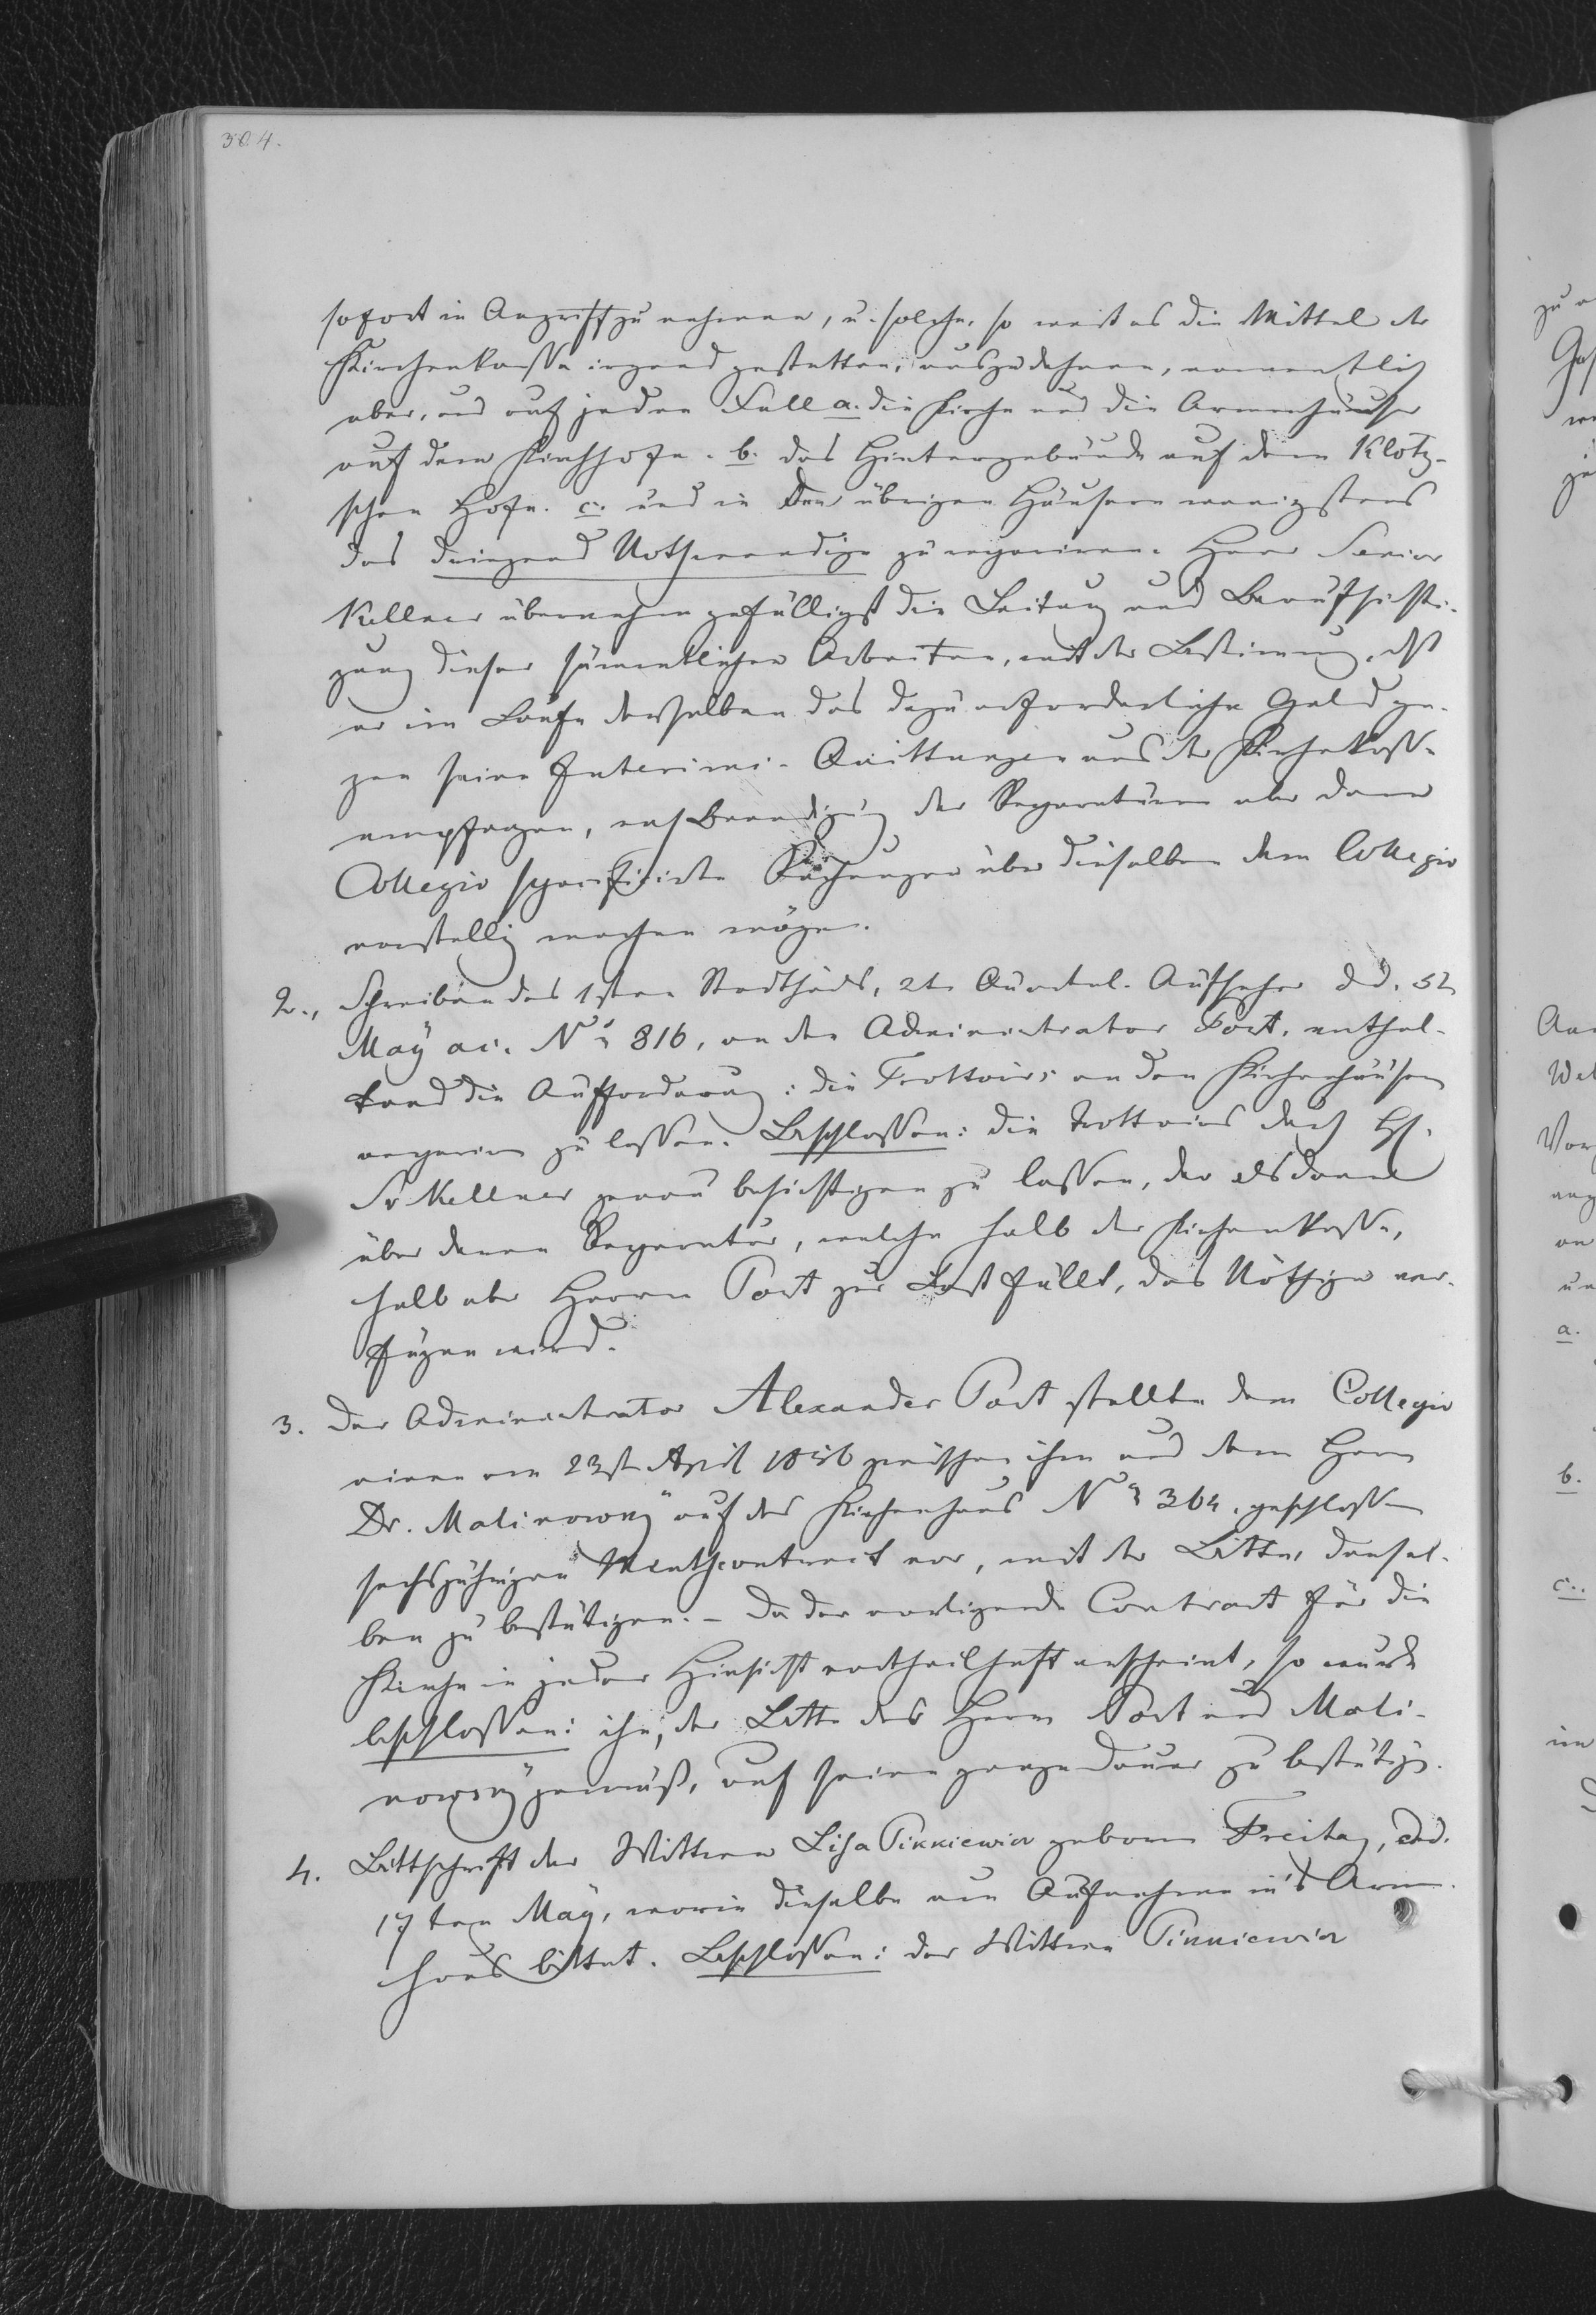 304.
sofort in Angriff zu nehmen, u. solche, so weit es die Mittel der
Kirchenkasse irgend gestatten, auszudehnen, namentlich
aber, und auf jeden Fall a. die Kirche und die Armenhäuser
auf dem Kirchhofe. b. das Hintergebäude auf dem Klotz-
schen Hofe. c. und in den übrigen Häusern wenigstens
das dringend Nothwendige zu repariren. Herr Senior
Kellner übernehme gefälligst die Leitung und Beaufsichti-
gung dieser sämmtlichen Arbeiten, mit der Bestimmung, dß
er im Laufe derselben das dazu erforderliche Geld ge-
gen seine Interims-Quittungen aus der Kirchenkasse
empfangen, nach Beendigung der Reparaturen aber dann
Collegio specificirte Rechnungen über dieselben dem Collegio
vorstellig machen möge.
2., Schreiben des 1sten Stadttheils, 2te Quartal-Aufseher d.d. 5t
May ac. No 816, an den Administrator Port, enthal-
tend die Aufforderung: die Trottoirs an den Kirchenhäusern
repariren zu lassen. Beschlossen: die Trottoirs durch H.
Sr Kellner genau besichtigen zu lassen, der alsdann
über deren Reparatur, welche halb der Kirchenkasse,
halb aber Herrn Port zur Last fällt, das Nöthige ver-
fügen wird.
3. Der Administrator Alexander Port stellte dem Collegio
einen am 23st April 1856 zwischen ihm und dem Herrn
Dr. Malinowsky auf das Kirchenhaus No 364 geschlossenen
sechsjährigen Miethcontract vor, mit der Bitte, densel-
ben zu bestätigen. – Da der vorliegende Contract für die
Kirche in jeder Hinsicht vortheilhaft erscheint, so wurde
beschlossen: ihn, der Bitte des Herrn Port und Mali-
nowsky gemäß, auf seine ganze Dauer zu bestätigen.
4. Bittschrift der Wittwe Lisa Pinkiewicz geborne Freitag, d.d.
17ten May, worin dieselbe um Aufnahme in's Armen-
haus bittet. Beschlossen: der Wittwe Pinkiewicz